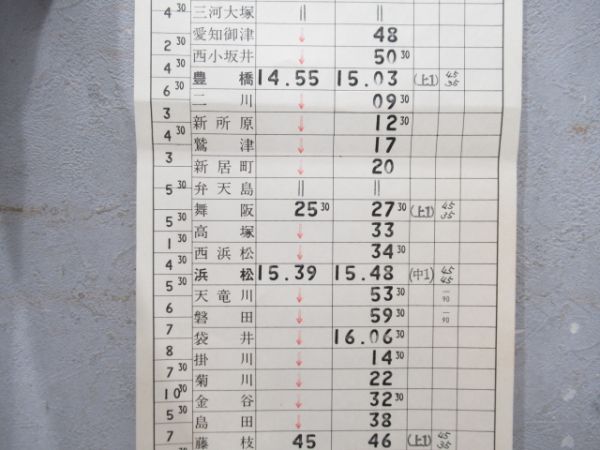 4 30 三河大塚 || ||
愛知御津 ↓ 48
2 30 西小坂井 ↓ 50 30
4 30 豊橋 14.55 15.03 (上1) 45 35
6 30 二川 ↓ 09 30
3 新所原 ↓ 12 30
4 30 鷲津 ↓ 17
3 新居町 ↓ 20
弁天島 || ||
5 30 舞阪 25 30 27 30 (上1) 45 35
5 30 高塚 ↓ 33
1 30 西浜松 ↓ 34 30
4 30 浜松 15.39 15.48 (中1) 45 45
5 30 天竜川 ↓ 53 30 — 90
6 磐田 ↓ 59 30 — 90
7 袋井 ↓ 16.06 30
8 掛川 ↓ 14 30
7 30 菊川 ↓ 22
10 30 金谷 ↓ 32 30
5 30 島田 ↓ 38
7 藤枝 45 46 (上1) 45 35